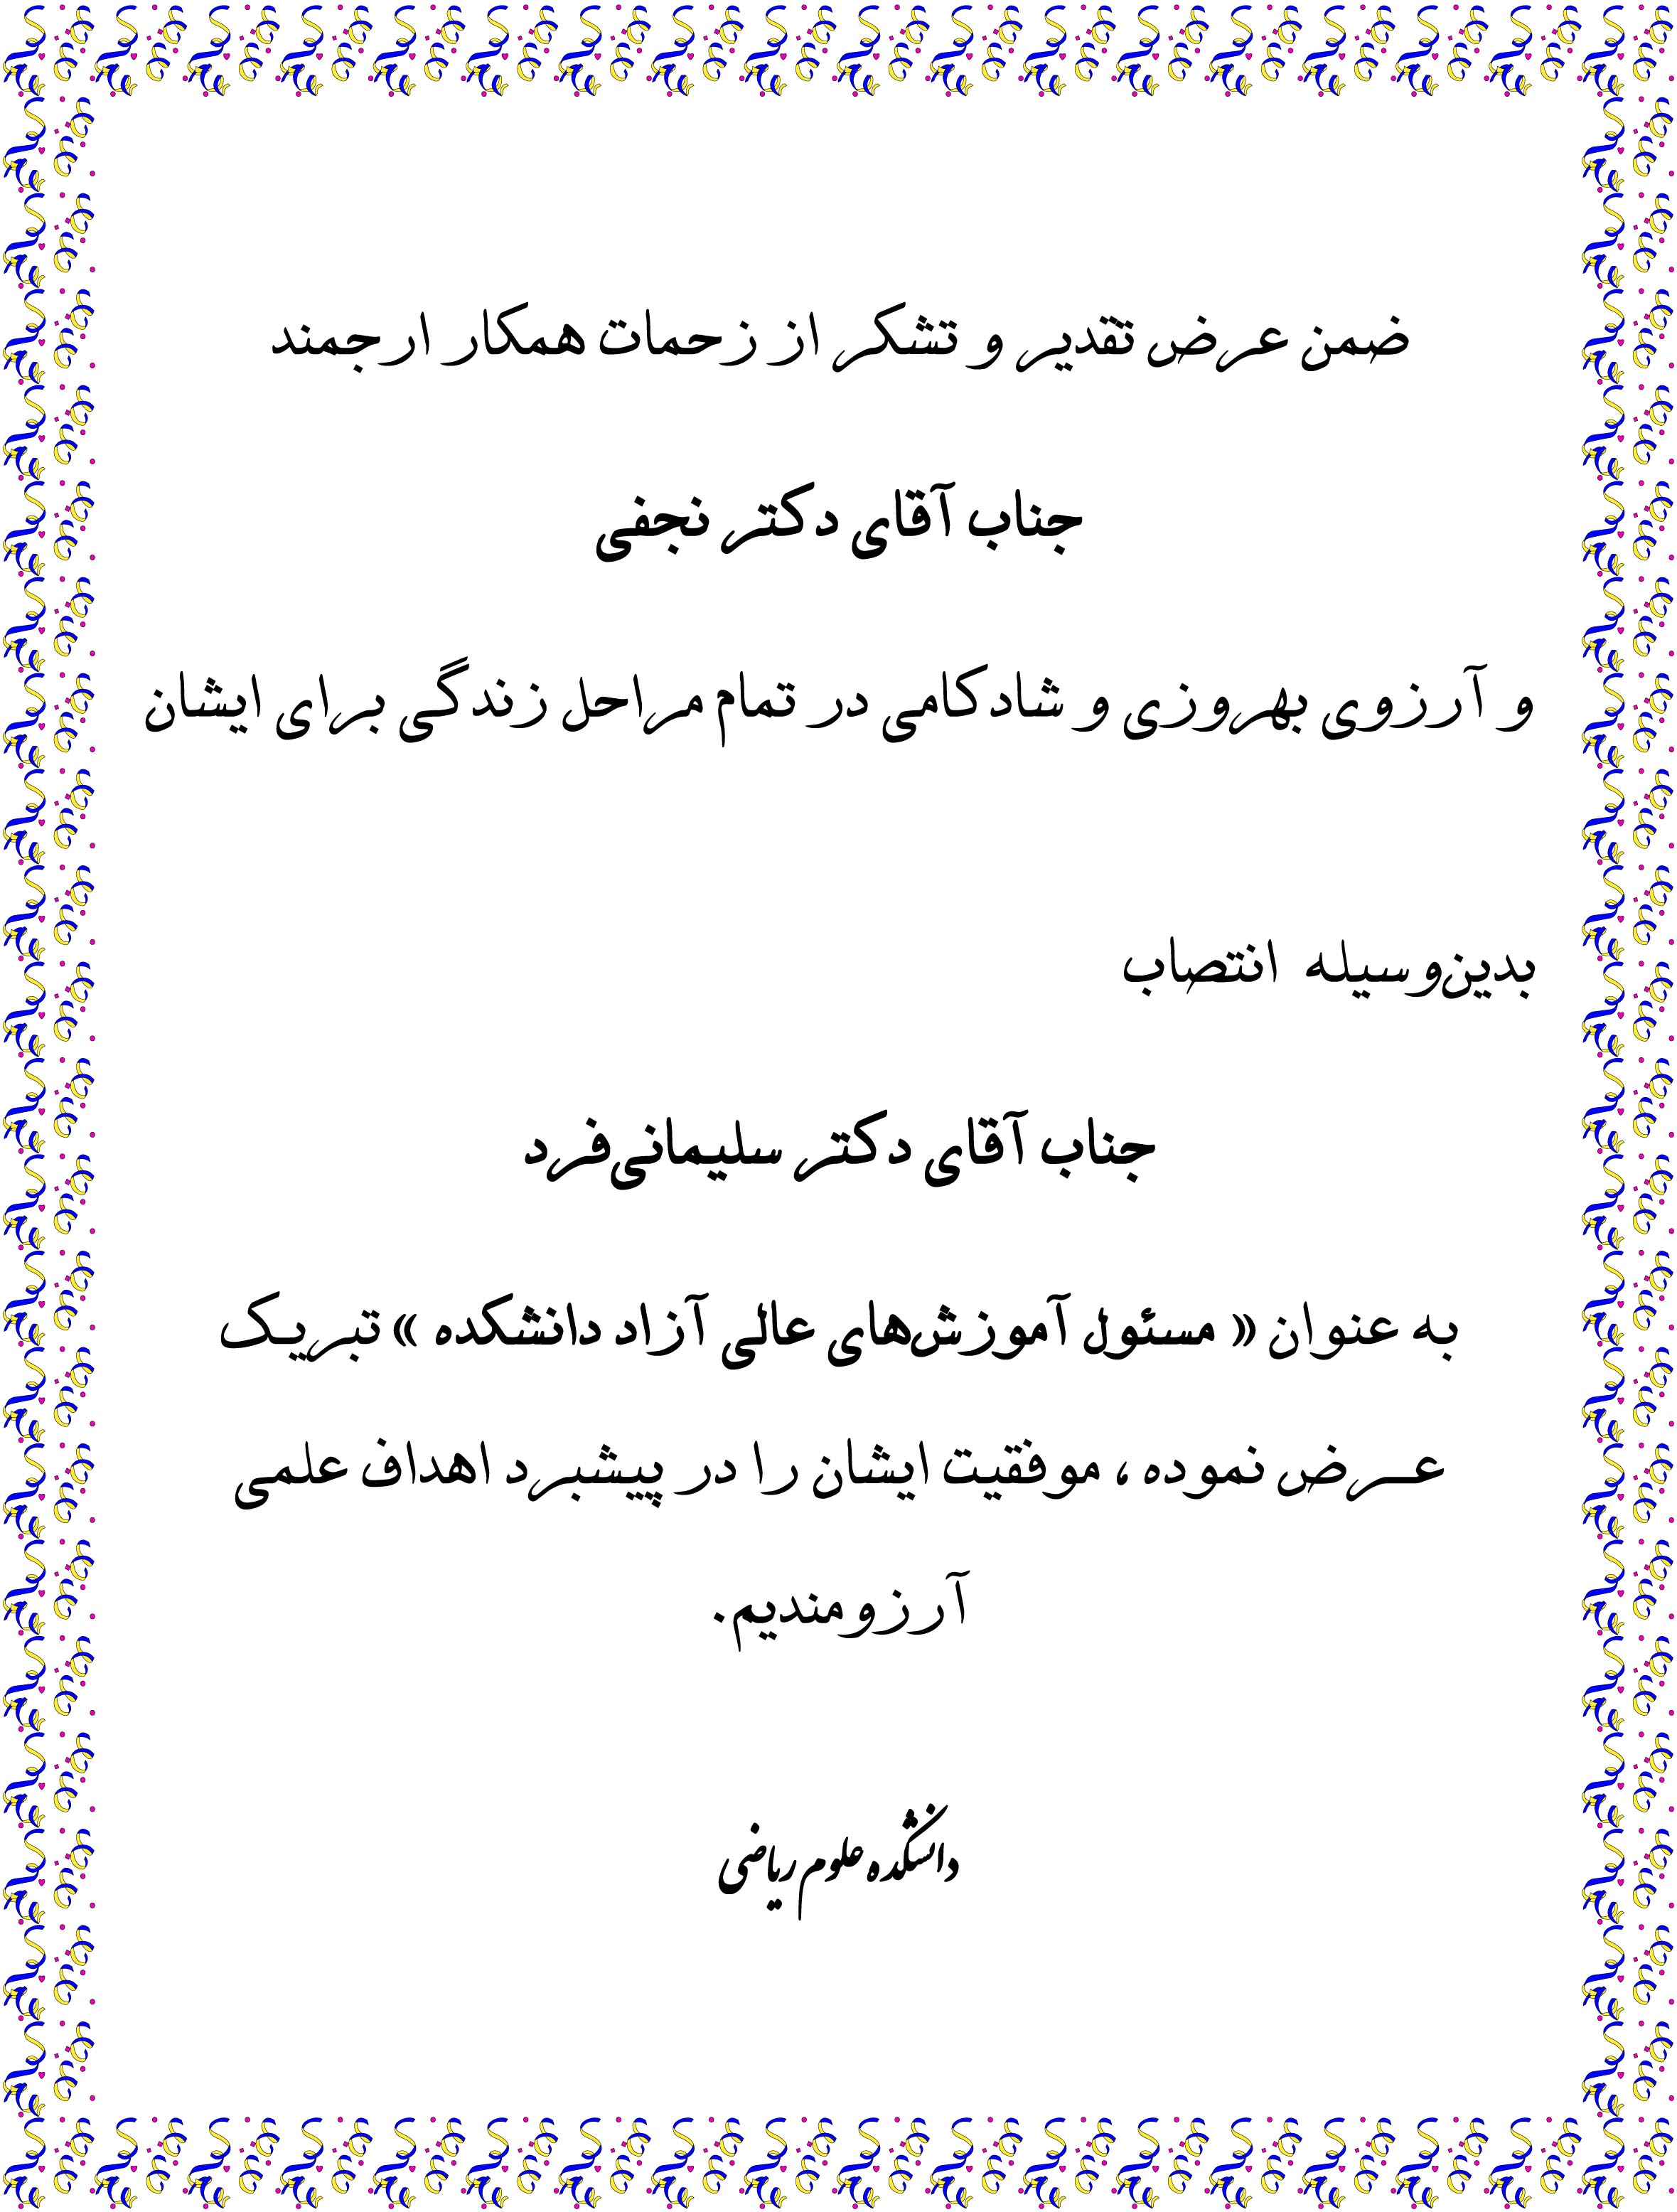 ضمن عرض تقدیر و تشکر از زحمات همکار ارجمند
جناب آقای دکتر نجفی
و آرزوی بهروزی و شادکامی در تمام مراحل زندگی برای ایشان
بدین‌وسیله انتصاب
جناب آقای دکتر سلیمانی‌فرد
به عنوان « مسئول آموزش‌های عالی آزاد دانشکده » تبریـک
عـرض نموده ، موفقیت ایشان را در پیشبرد اهداف علمی
آرزومندیم.
دانشکده علوم ریاضی